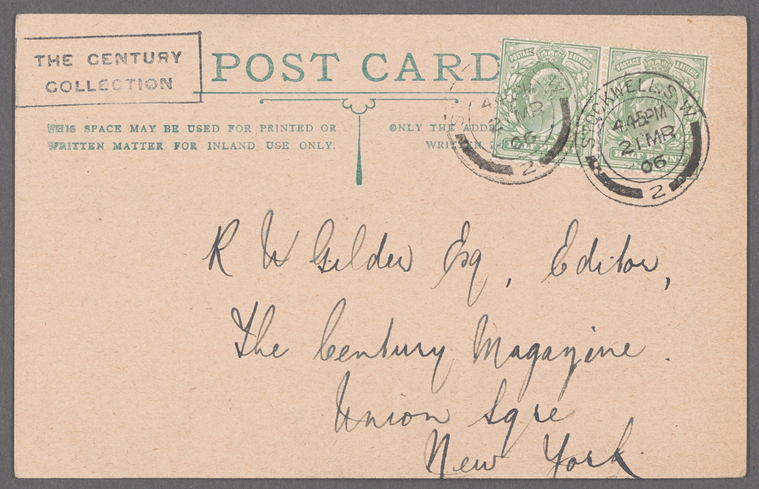 THE CENTURY
COLLECTION
POST CARD
THIS SPACE MAY BE USED FOR PRINTED OR
WRITTEN MATTER FOR INLAND USE ONLY.
ONLY THE ADD
WRIT
POSTAGE
STOCKWELL.S.W.
4.45PM
21MR
06
2
MR
06
2
R W Gilder Esq, Editor,
The Century Magazine.
Union Sqre
New York